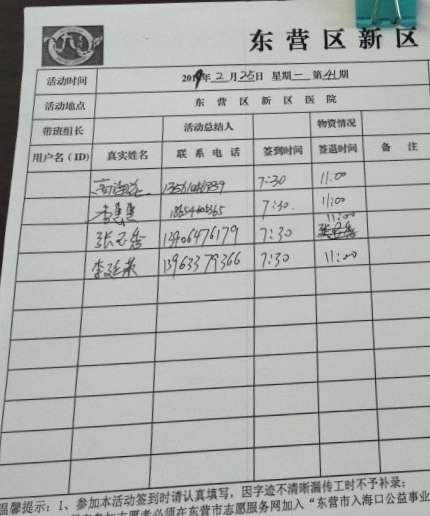 东营区新区
活动时间 2019年2月25日 星期一 第41期
活动地点 东营区新区医院
带班组长 活动总结人 物资情况
用户名(ID) 真实姓名 联系电话 签到时间 签退时间 备 注
7:30 11:00
李慧慧 7:30. 11:00
11:00
张玉香 13906476179 7:30
李延荣 13963379366 7:30 11:00
温馨提示:1、参加本活动签到时请认真填写,因字迹不清晰漏传工时不予补录;
志愿者必须在东营市志愿服务网加入“东营市入海口公益事业